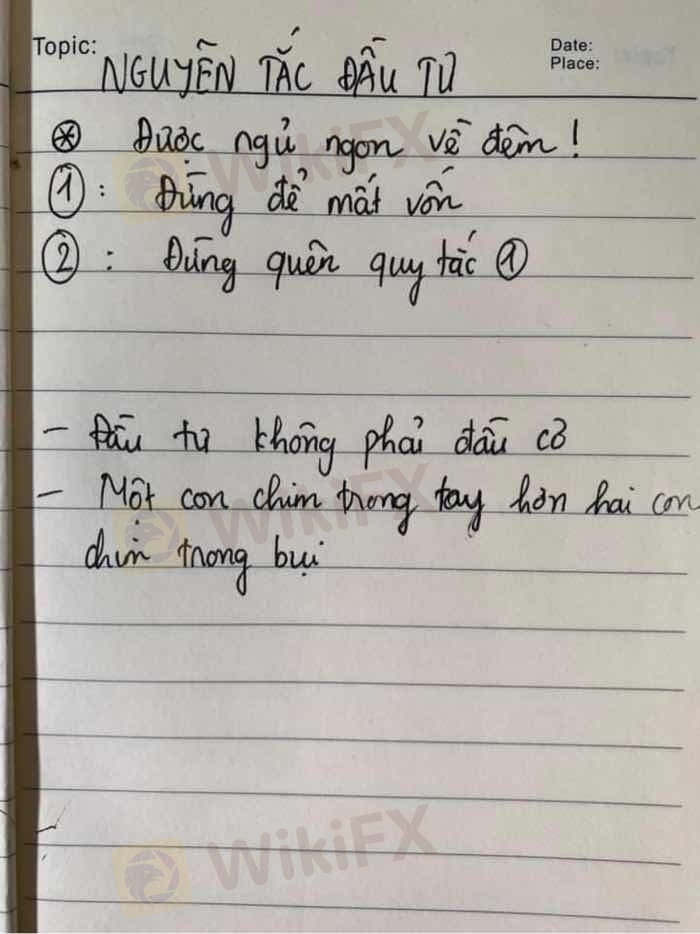 Topic: NGUYÊN TẮC ĐẦU TƯ
Date:
Place:
⊛ Được ngủ ngon về đêm!
①: Đừng để mất vốn
②: Đừng quên quy tắc ①
- Đầu tư không phải đầu cơ
- Một con chim trong tay hơn hai con
chim trong bụi
WikiFX
WikiFX
WikiFX
WikiFX